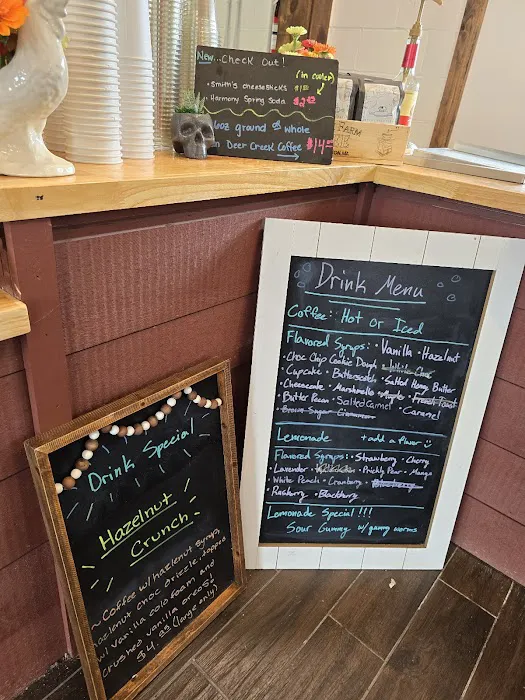 New...Check Out!
(in cooler)
• Smith's cheesesticks
• Harmony Spring Soda $2
ground or whole
Deer Creek Coffee $14
FARM
Drink Menu
Coffee: Hot or Iced
Flavored Syrups: • Vanilla • Hazelnut
• Choc Chip Cookie Dough • White Choc
• Cupcake • Butterscotch • Salted Honey Butter
• Cheesecake • Marshmallo • Apple • French Toast
• Butter Pecan • Salted Carmel • Caramel
• Brown Sugar Cinnamon
Lemonade + add a flavor
Flavored Syrups: • Strawberry • Cherry
• Lavender • • Prickly Pear • Mango
• White Peach • Cranberry • Blueberry
• Rasberry • Blackberry
Lemonade Special!!!
Sour Gummy w/ gummy worms
Drink Special
Hazelnut
Crunch
~ Coffee w/ hazelnut syrup,
hazelnut choc drizzle, topped
w/ vanilla cold foam and
crushed vanilla oreos!
$4. (large only)